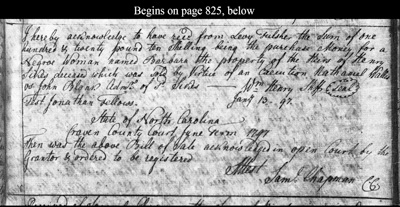 Begins on page 825, below
I hereby acknowledge to have recd from Levy Fulsher the Sum of one
hundred & twenty pound ten Shilling being the purchase Money for a
Negroe Woman named Barbara the property of the Heirs of Henry
deceased which was sold by Virtue of an Execution Nathaniel
vs John Bigns Admr of D — Wm Henry Shff Seal
Test Jonathan Fellows. Jany 13. 97.
State of North Carolina
Craven County Court June Term 1797
Then was the above Bill of Sale acknowledged in open Court by the
Grantor & ordered to be registered
Attest
Saml Chapman CC